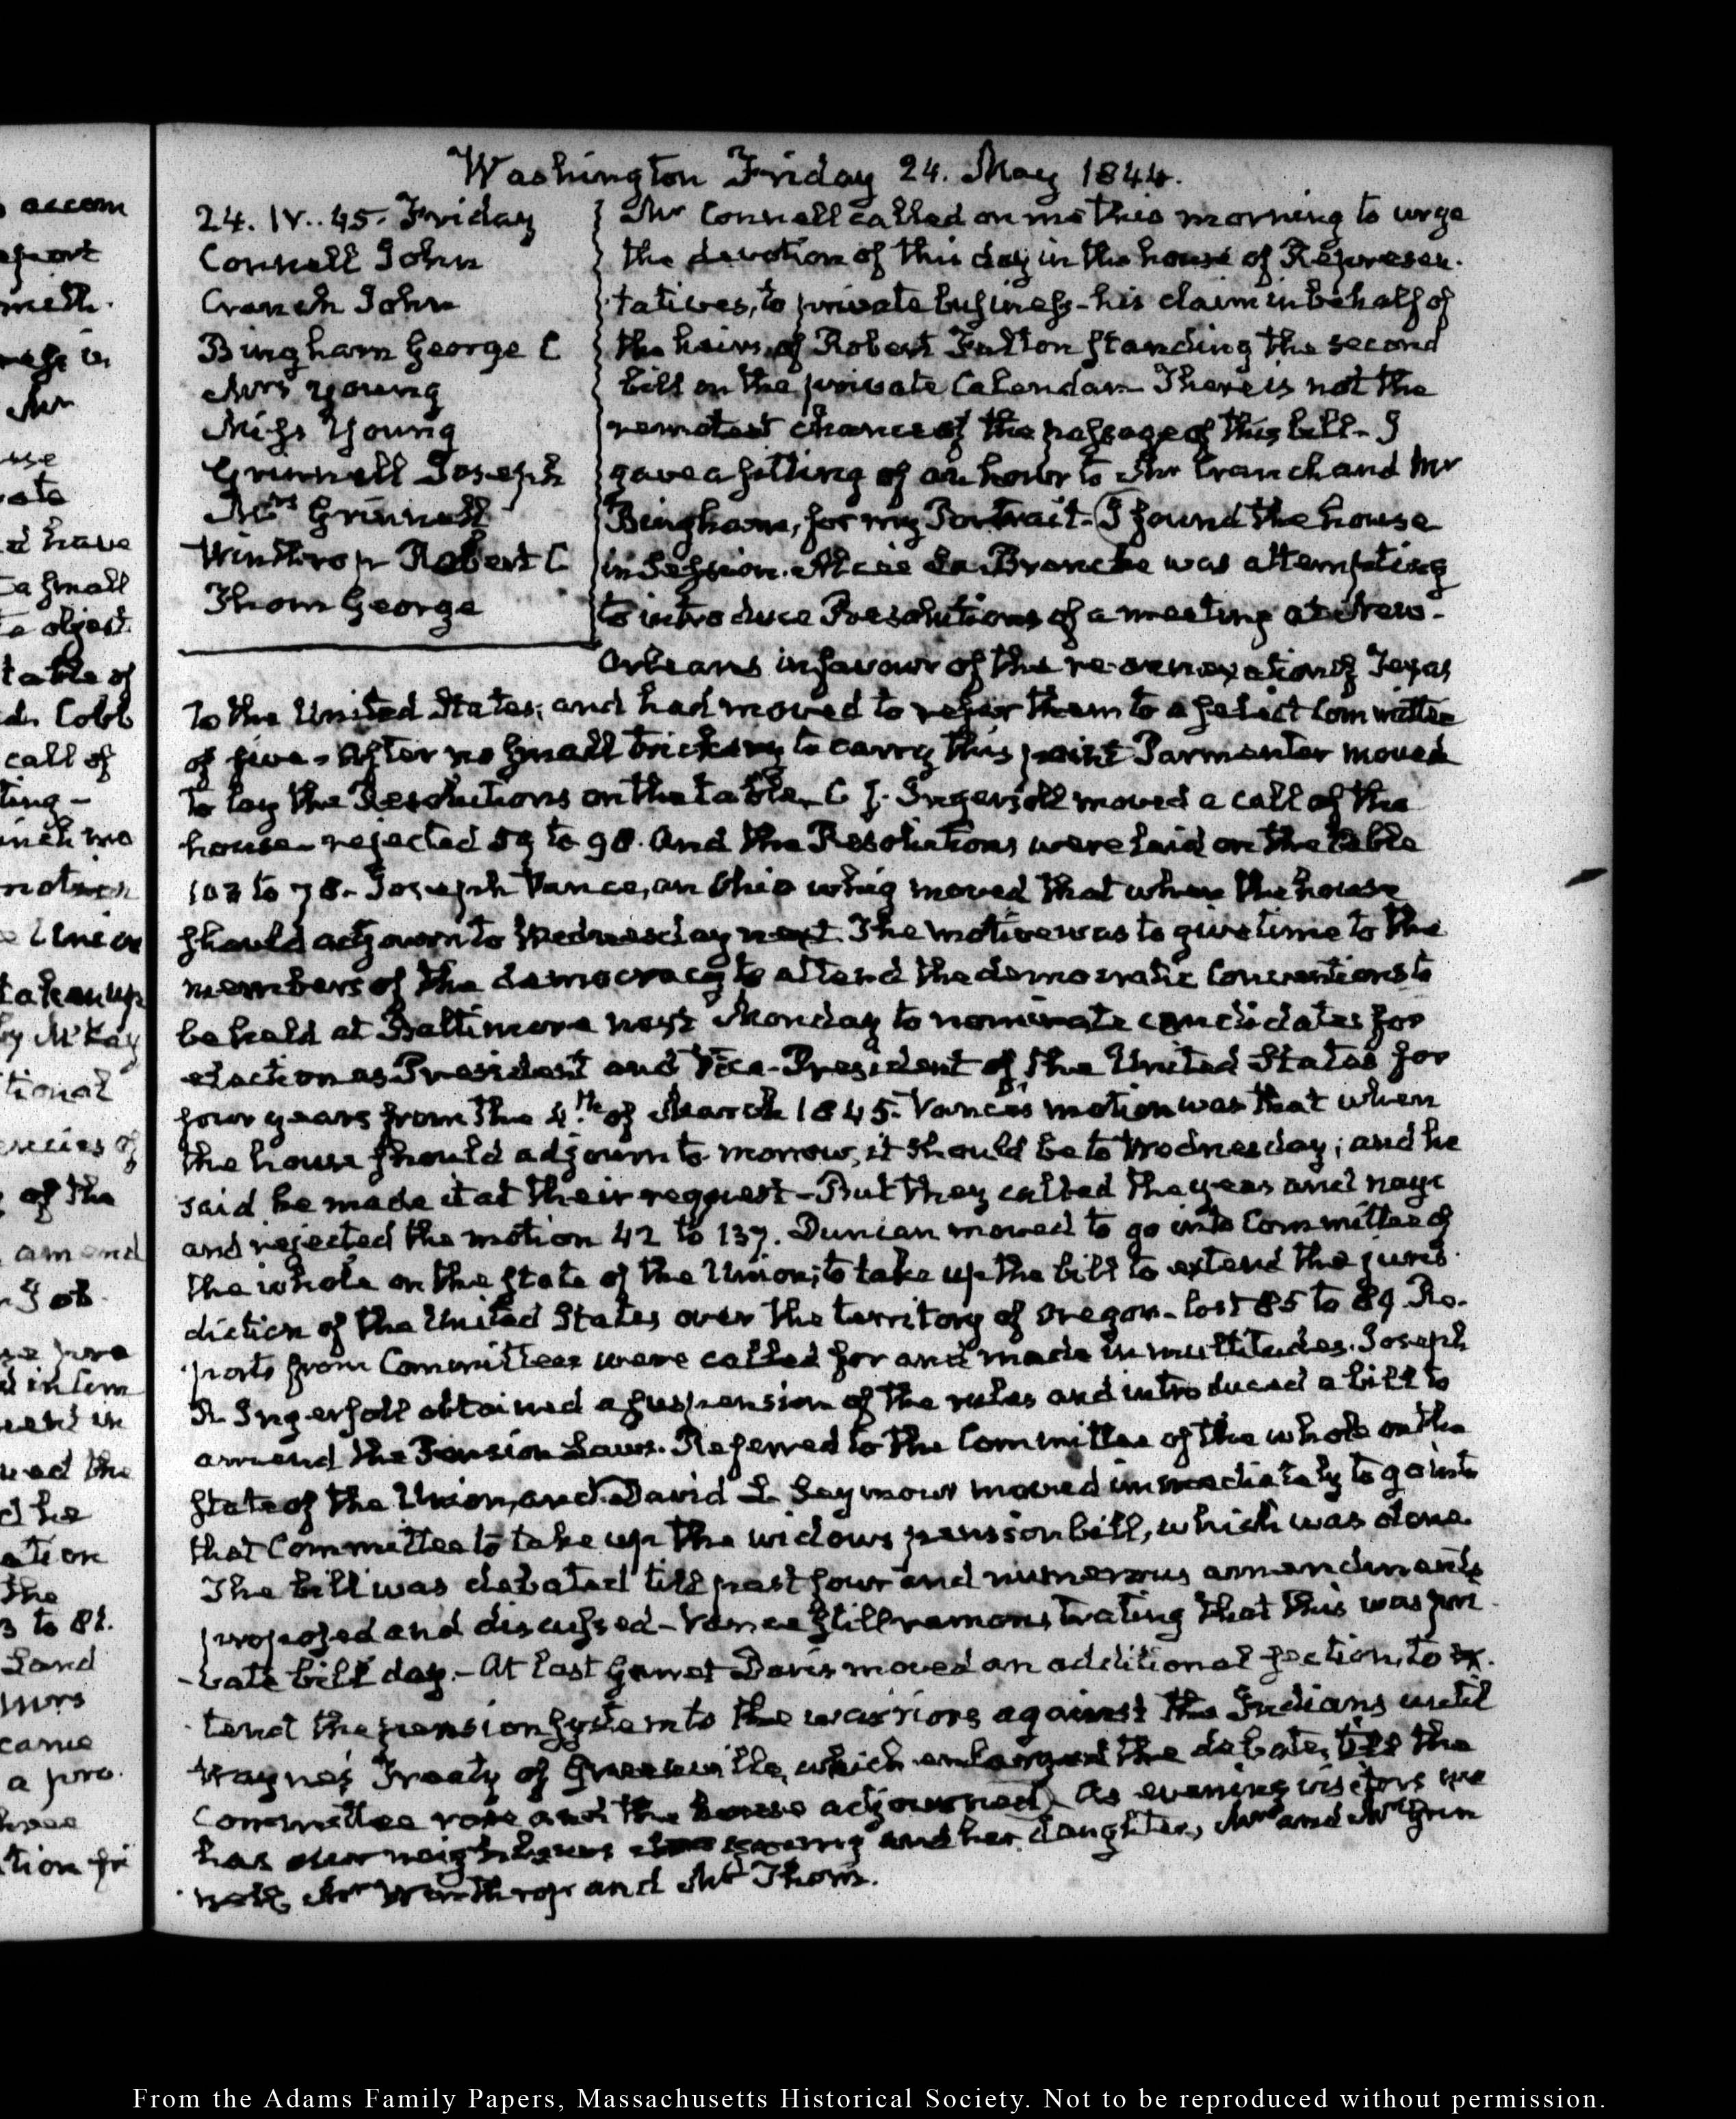 Washington Friday 24. May 1844.
24. IV..45. Friday
Connell John
Cranch John
Bingham George C
Mrs Young
Miss Young
Grinnell Joseph
Mrs Grinnell
Winthrop Robert C
Thom George
Mr Connell called on me this morning to urge
the devotion of this day in the house of Represen-
tatives, to private business - his claim in behalf of
the heirs of Robert Fulton standing the second
bill on the private Calendar - There is not the
remotest chance of the passage of this bill - I
gave a sitting of an hour to Mr Cranch and Mr
Bingham, for my Portrait. I found the house
in Session. Alcée La Branche was attempting
to introduce Resolutions of a meeting at New-
Orleans in favour of the re-annexation of Texas
to the United States; and had moved to refer them to a select Committee
of five - After no small trickery to carry this point Parmenter moved
to lay the Resolutions on the table - C. J. Ingersoll moved a call of the
house - rejected 59 to 98. And the Resolutions were laid on the table
103 to 78. Joseph Vance, an Ohio whig moved that when the house
should adjourn to Wednesday next. The motive was to give time to the
members of the democracy to attend the democratic Conventions to
be held at Baltimore next Monday to nominate candidates for
election as President and Vice-President of the United States for
four years from the 4th of March 1845. Vance's motion was that when
the house should adjourn to-morrow, it should be to Wednesday; and he
said he made it at their request - But they called the yeas and nays
and rejected the motion 42 to 137. Duncan moved to go into Committee of
the whole on the state of the Union; to take up the bill to extend the juris-
diction of the United States over the territory of Oregon - lost 85 to 89. Re-
ports from Committees were called for and made in multitudes. Joseph
R. Ingersoll obtained a suspension of the rules and introduced a bill to
amend the Pension Laws. Referred to the Committee of the whole on the
state of the Union, and David L. Seymour moved immediately to go into
that Committee to take up the widows pension bill, which was done.
The bill was debated till past four and numerous amendments
proposed and discussed - Vance still remonstrating that this was pri-
vate bill day. - At last Garret Davis moved an additional section, to ex-
tend the pension system to the warriors against the Indians until
Wayne's Treaty of Greenville, which enlarged the debate, till the
Committee rose and the house adjourned. As evening visitors we
had our neighbours Mrs Young and her daughter, Mr and Mrs Grin-
nell, Mr Winthrop and Mr Thom.
accom
port
meth.
Mr
use
have
a small
object
table of
Cobb
call of
ting -
motion
Union
taken up
by McKay
tional
ecies of
of the
amend
I ob-
the
ation
the
3 to 81.
Land
came
a pro-
From the Adams Family Papers, Massachusetts Historical Society. Not to be reproduced without permission.